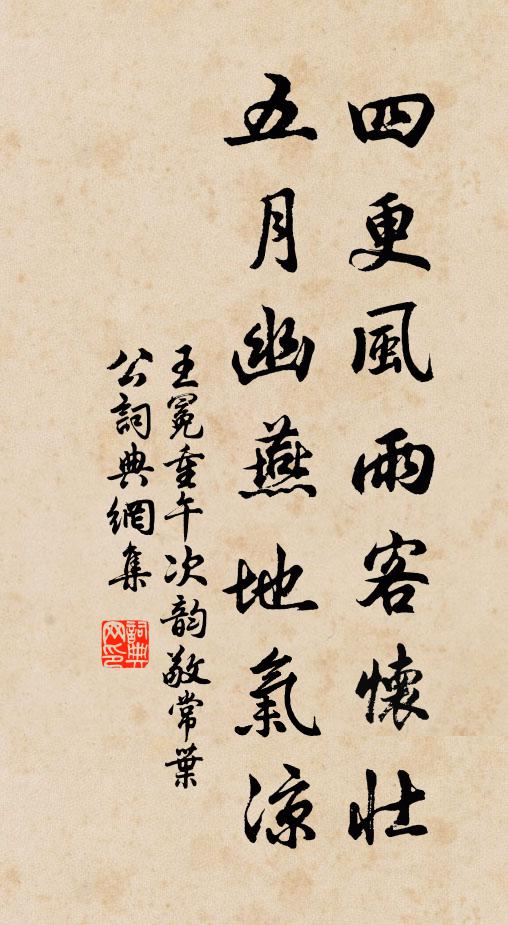 四更風雨客懷壯
五月幽燕地氣涼
王冕重午次韵敬常葉
公詞典網集
詞典網印